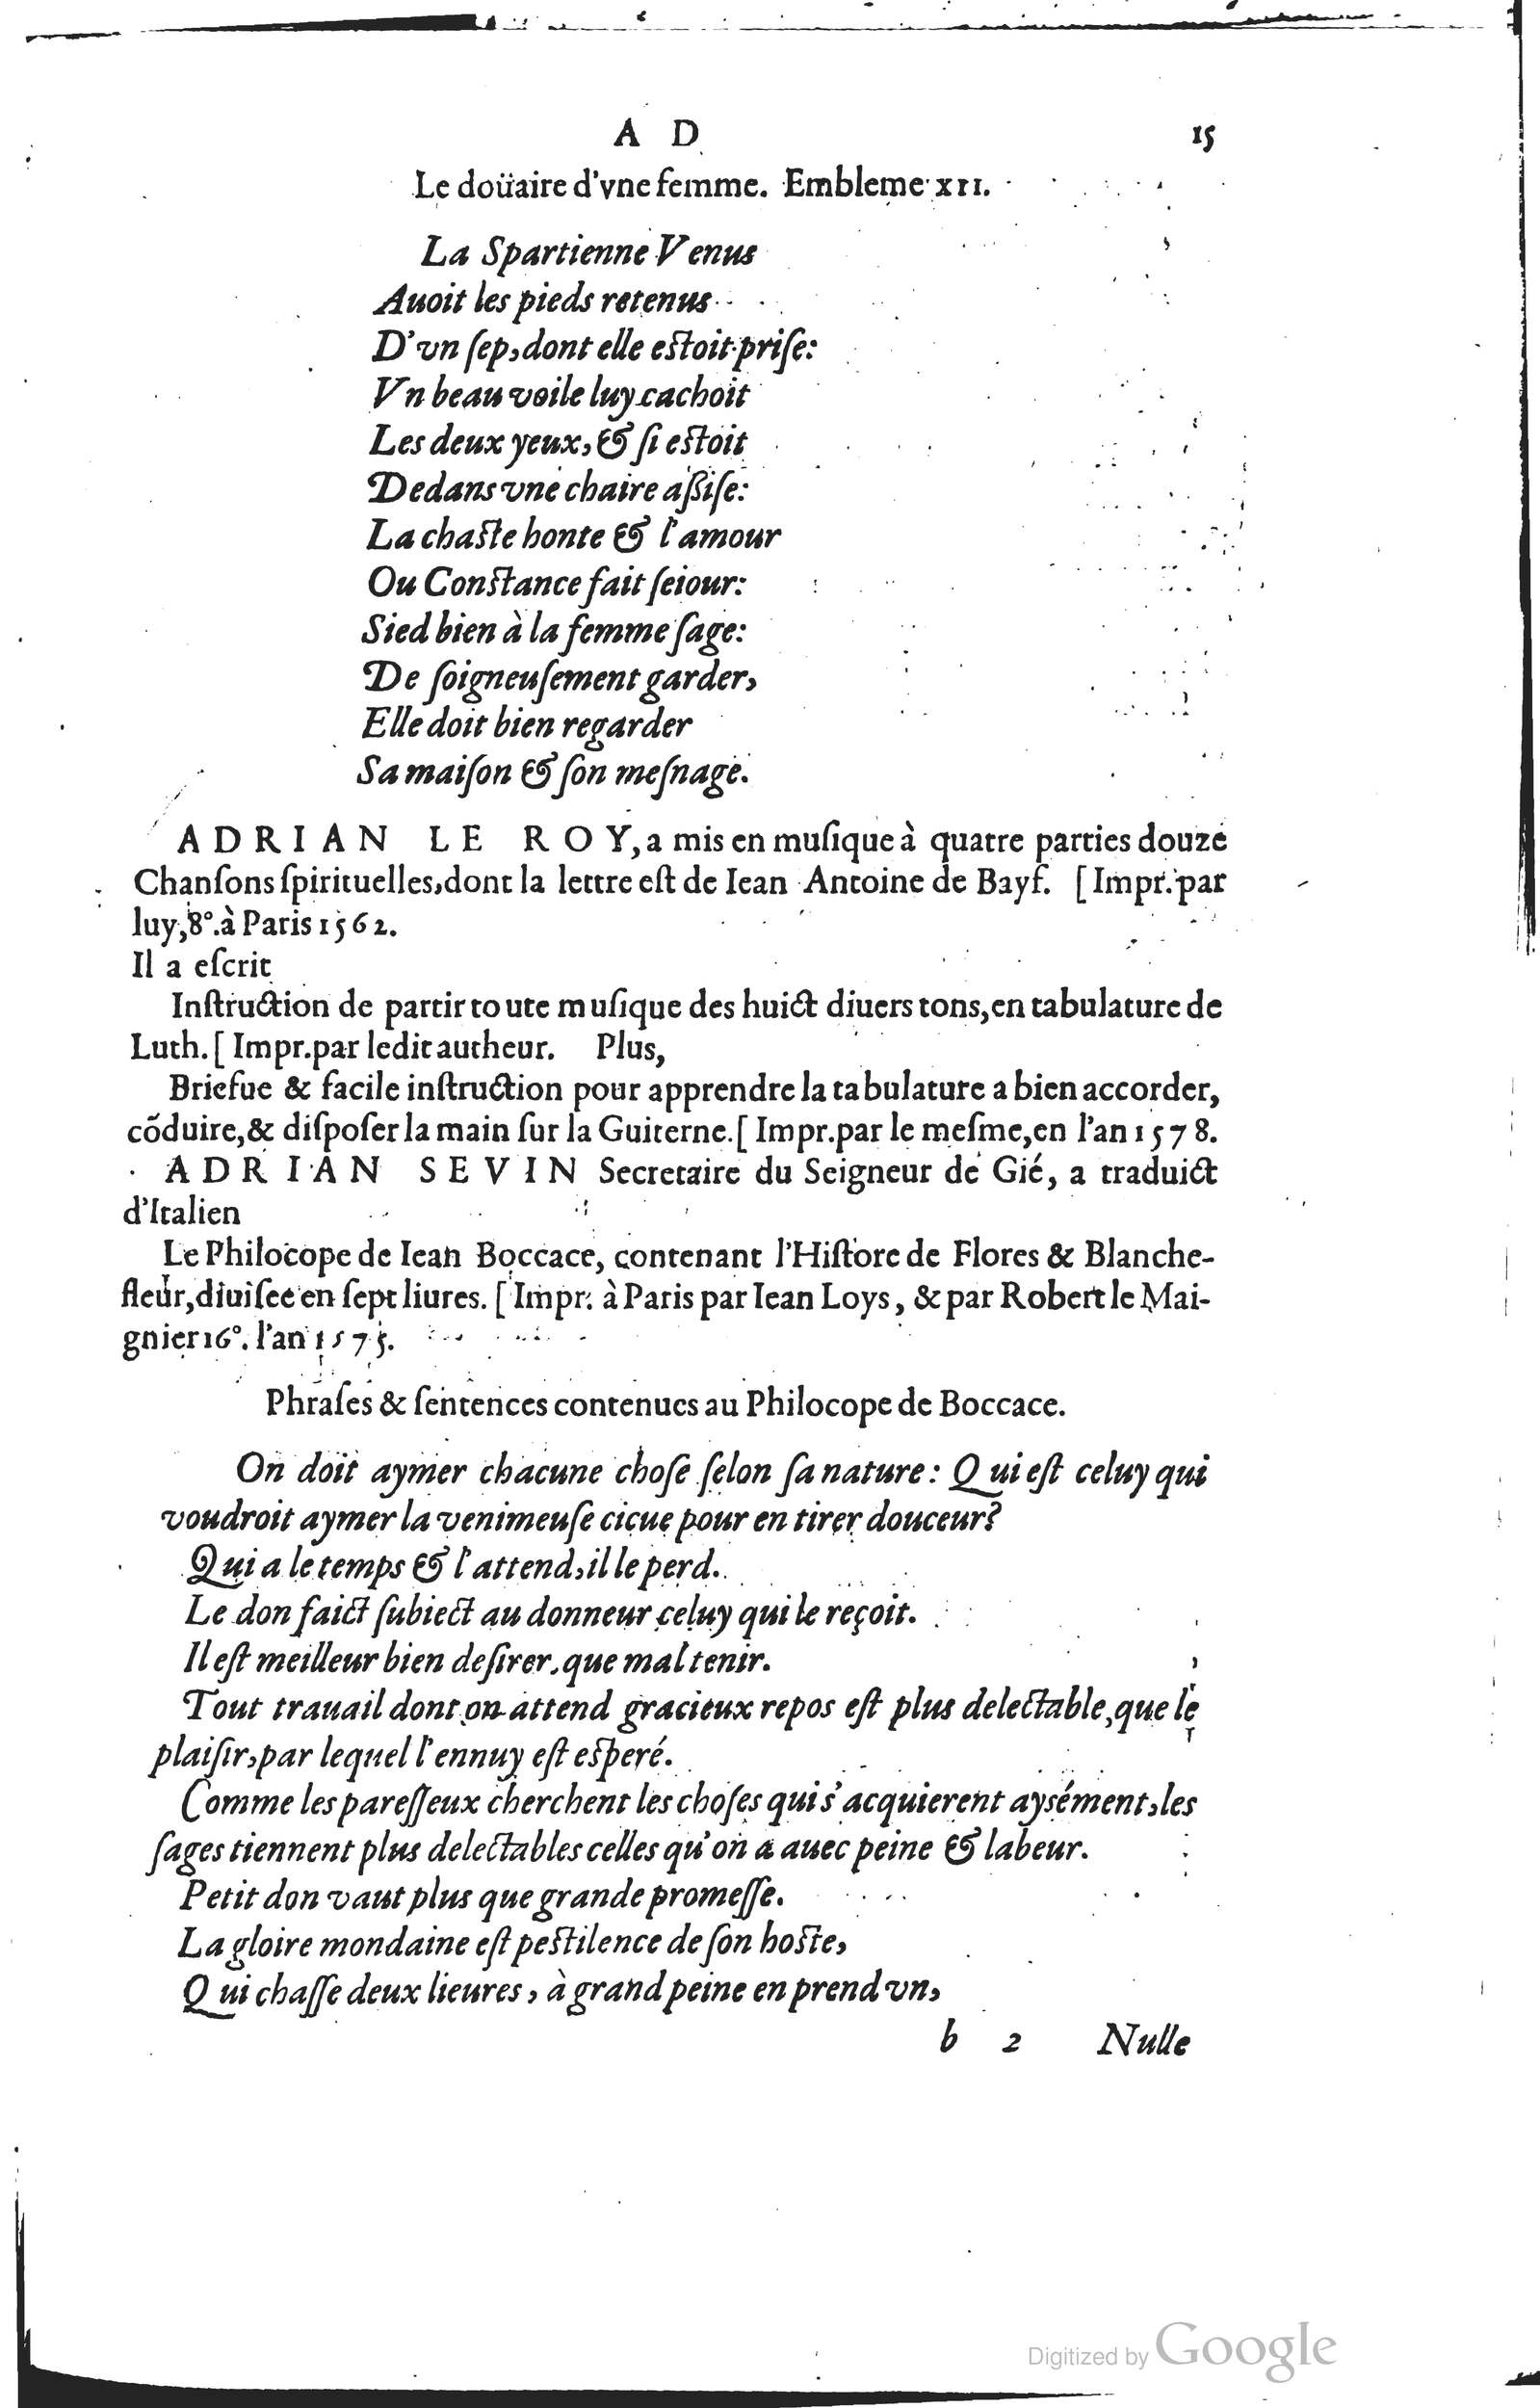 A D 15
Le doüaire d'vne femme. Embleme XII.
La Spartienne Venus
Auoit les pieds retenus
D'vn ſep, dont elle eſtoit priſe:
Vn beau voile luy cachoit
Les deux yeux, & ſi eſtoit
Dedans vne chaire aſſiſe:
La chaſte honte & l'amour
Ou Conſtance fait ſeiour:
Sied bien à la femme ſage:
De ſoigneuſement garder,
Elle doit bien regarder
Sa maiſon & ſon meſnage.
ADRIAN LE ROY, a mis en muſique à quatre parties douze
Chanſons ſpirituelles, dont la lettre eſt de Iean Antoine de Bayf. [Impr. par
luy, 8°. à Paris 1562.
Il a eſcrit
Inſtruction de partir toute muſique des huict diuers tons, en tabulature de
Luth. [Impr. par ledit autheur. Plus,
Briefue & facile inſtruction pour apprendre la tabulature a bien accorder,
cõduire, & diſpoſer la main ſur la Guiterne. [Impr. par le meſme, en l'an 1578.
ADRIAN SEVIN Secretaire du Seigneur de Gié, a traduict
d'Italien
Le Philocope de Iean Boccace, contenant l'Hiſtore de Flores & Blanche-
fleur, diuiſee en ſept liures. [Impr. à Paris par Iean Loys, & par Robert le Mai-
gnier 16°. l'an 1575.
Phraſes & ſentences contenues au Philocope de Boccace.
On doit aymer chacune choſe ſelon ſa nature: Qui eſt celuy qui
voudroit aymer la venimeuſe cicue pour en tirer douceur?
Qui a le temps & l'attend, il le perd.
Le don faict ſubiect au donneur celuy qui le reçoit.
Il eſt meilleur bien deſirer, que mal tenir.
Tout trauail dont on attend gracieux repos eſt plus delectable, que le
plaiſir, par lequel l'ennuy eſt eſperé.
Comme les pareſſeux cherchent les choſes qui s'acquierent aysément, les
ſages tiennent plus delectables celles qu'on a auec peine & labeur.
Petit don vaut plus que grande promeſſe.
La gloire mondaine eſt peſtilence de ſon hoſte,
Qui chaſſe deux lieures, à grand peine en prend vn,
b 2 Nulle
Digitized by Google